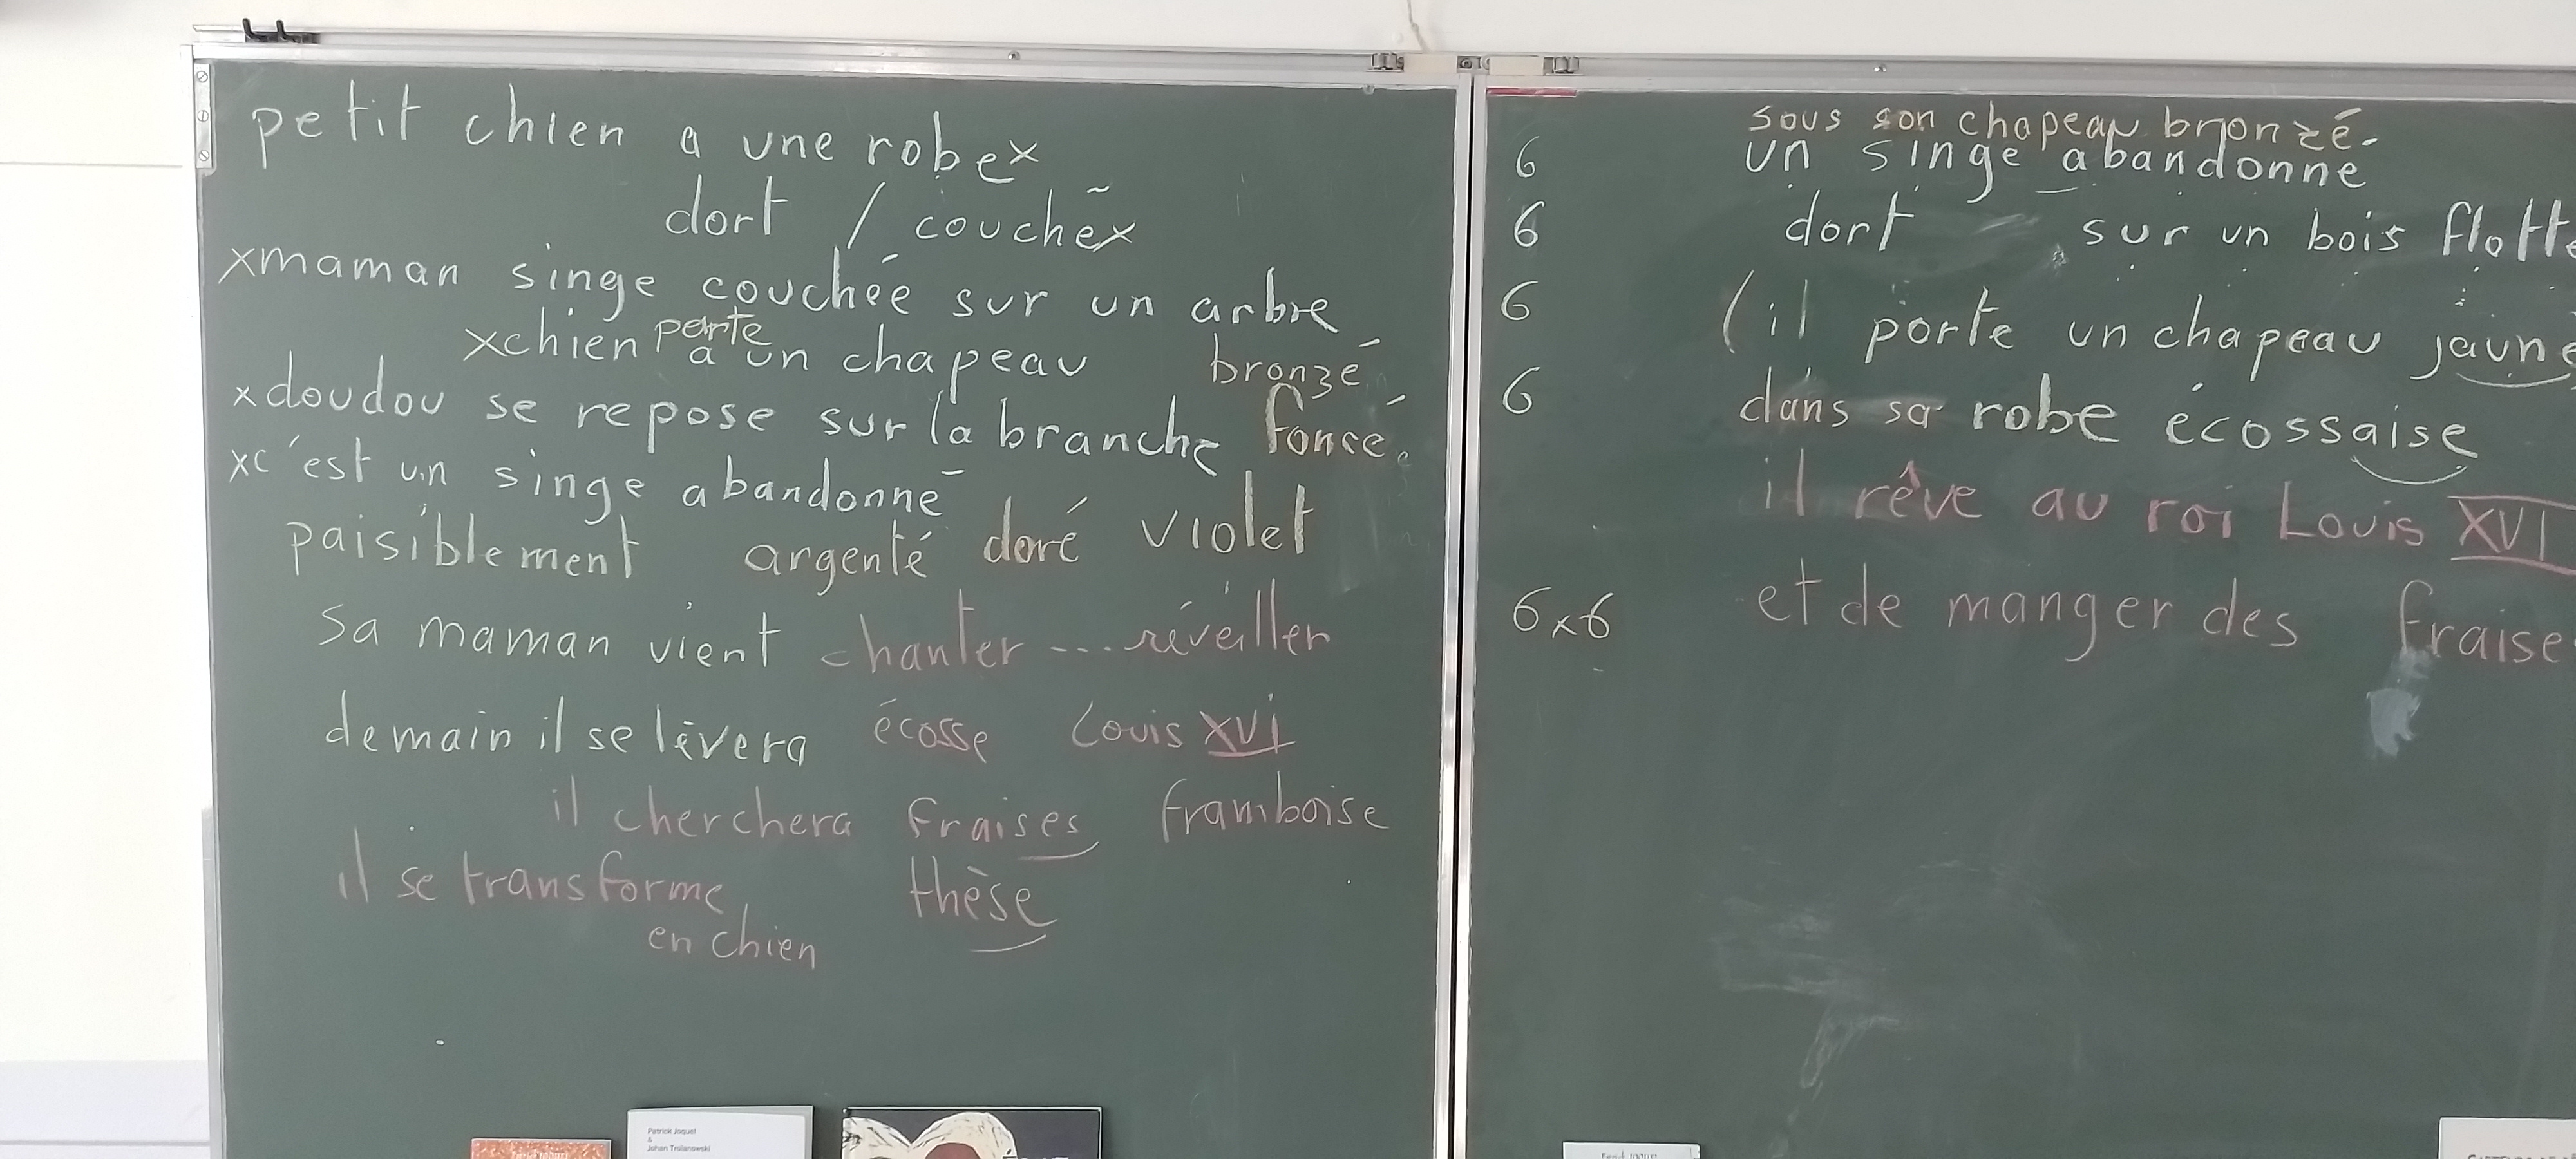 petit chien a une robe x
dort / couché x
x maman singe couchée sur un arbre
porte
x chien a un chapeau bronzé
x doudou se repose sur la branche foncé
x c'est un singe abandonné
paisiblement argenté doré violet
sa maman vient chanter .... réveiller
demain il se lèvera écosse Louis XVI
il cherchera fraises framboise
il se transforme thèse
en chien
Patrick Joquel
&
Johan Troïanowski
sous son chapeau bronzé.
6 un singe abandonné
6 dort sur un bois flotté
6 (il porte un chapeau jaune
6 dans sa robe écossaise
il rêve au roi Louis XVI
6x6 et de manger des fraise